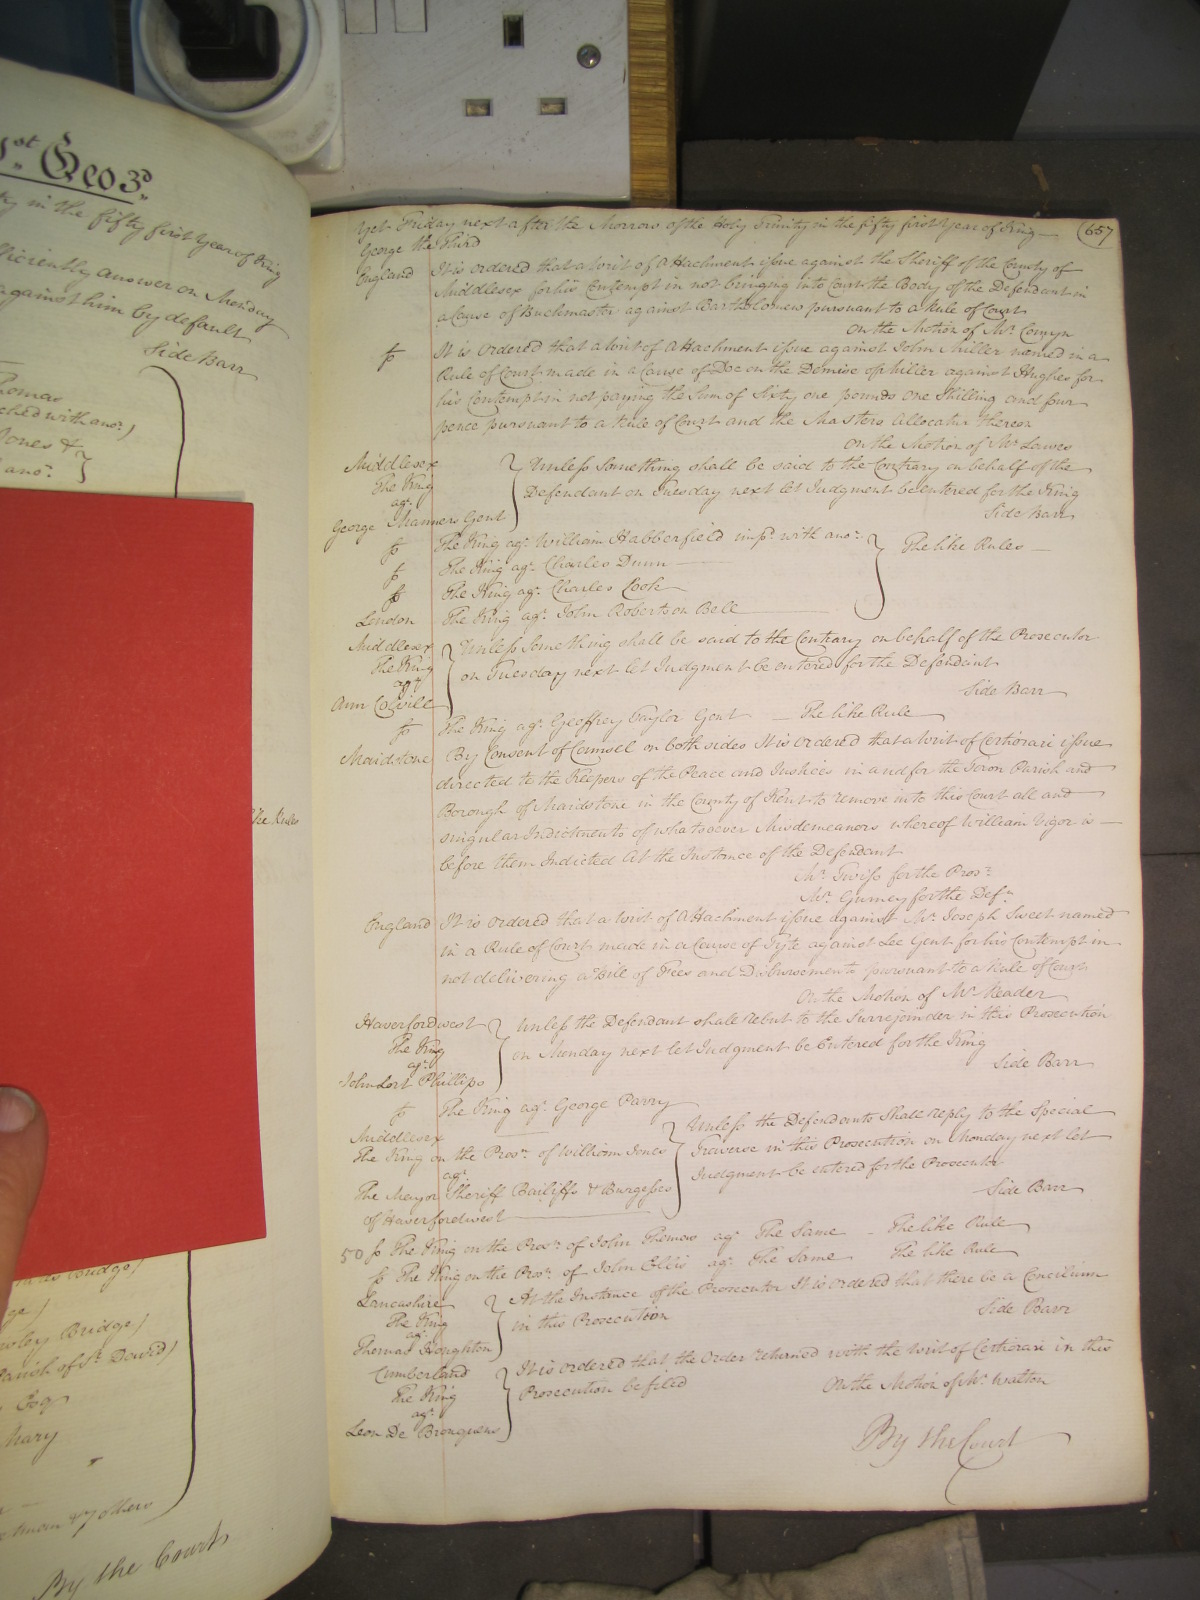 1st. Geo 3d.
in the fifty first Year of King
sufficiently answer on Monday
against him by default
Side Barr
Thomas
with anor.)
Jones &
anor.
like Rules
Bridge)
Bridge)
Parish of St. David)
Esq
Mary
others)
By the Court
Yet Friday next after the Morrow of the Holy Trinity in the fifty first Year of King (657
George the Third
England It is ordered that a Writ of Attachment issue against the Sheriff of the County of
Middlesex for his Contempt in not bringing into Court the Body of the Defendant in
a Cause of Buckmaster against Bartholomew pursuant to a Rule of Court
On the Motion of Mr. Comyn
It is ordered that a Writ of Attachment issue against John Miller named in a
Rule of Court made in a Cause of Doe on the Demise of Miller against Hughes for
his Contempt in not paying the Sum of Sixty one pounds one Shilling and four
pence pursuant to a Rule of Court and the Masters Allocatur thereon
On the Motion of Mr. Lawes
Middlesex
The King
agt.
George Manners Gent
Unless Something shall be said to the Contrary on behalf of the
Defendant on Tuesday next let Judgment be entered for the King
Side Barr
The King agt. William Habberfield impd. with anor.
The King agt. Charles Dunn
The King agt. Charles Cook
London The King agt. John Robertson Bell
The like Rules
Middlesex
The King
agt.
Ann
Unless Something shall be said to the Contrary on behalf of the Prosecutor
on Tuesday next let Judgment be entered for the Defendant
Side Barr
The King agt. Geoffrey Taylor Gent The like Rule
Maidstone By Consent of Counsel on both sides It is Ordered that a Writ of Certiorari issue
directed to the Keepers of the Peace and Justices in and for the Town Parish and
Borough of Maidstone in the County of Kent to remove into this Court all and
singular Indictments of whatsoever Misdemeanors whereof William Vigor is
before them Indicted At the Instance of the Defendant
Mr. Twiss for the Prosr.
Mr. Gurney for the Deft.
England It is ordered that a Writ of Attachment issue against Mr. Joseph Sweet named
in a Rule of Court made in a Cause of Tyte against Lee Gent for his Contempt in
not delivering a Bill of Fees and Disbursements pursuant to a Rule of Court
On the Motion of Mr. Reader
Haverfordwest
The King
agt.
John Lort Phillips
Unless the Defendant shall rebut to the Surrejoinder in this Prosecution
on Monday next let Judgment be Entered for the King
Side Barr
The King agt. George Parry
Middlesex
The King on the Prosn. of William Jones
agt.
The Mayor Sheriff Bailiffs & Burgesses
of Haverfordwest
Unless the Defendants Shall reply to the Special
Traverse in this Prosecution on Monday next let
Judgment be entered for the Prosecutor
Side Barr
50 The King on the Prosn. of John Thomas agt. The Same - The like Rule
The King on the Prosn. of John Ellis agt. The Same The like Rule
Lancashire
The King
agt.
Thomas Houghton
At the Instance of the Prosecutor It is ordered that there be a Concilium
in this Prosecution
Side Barr
Cumberland
The King
agt.
Leon De
It is ordered that the Order returned with the Writ of Certiorari in this
Prosecution be filed
On the Motion of Mr. Walton
By the Court